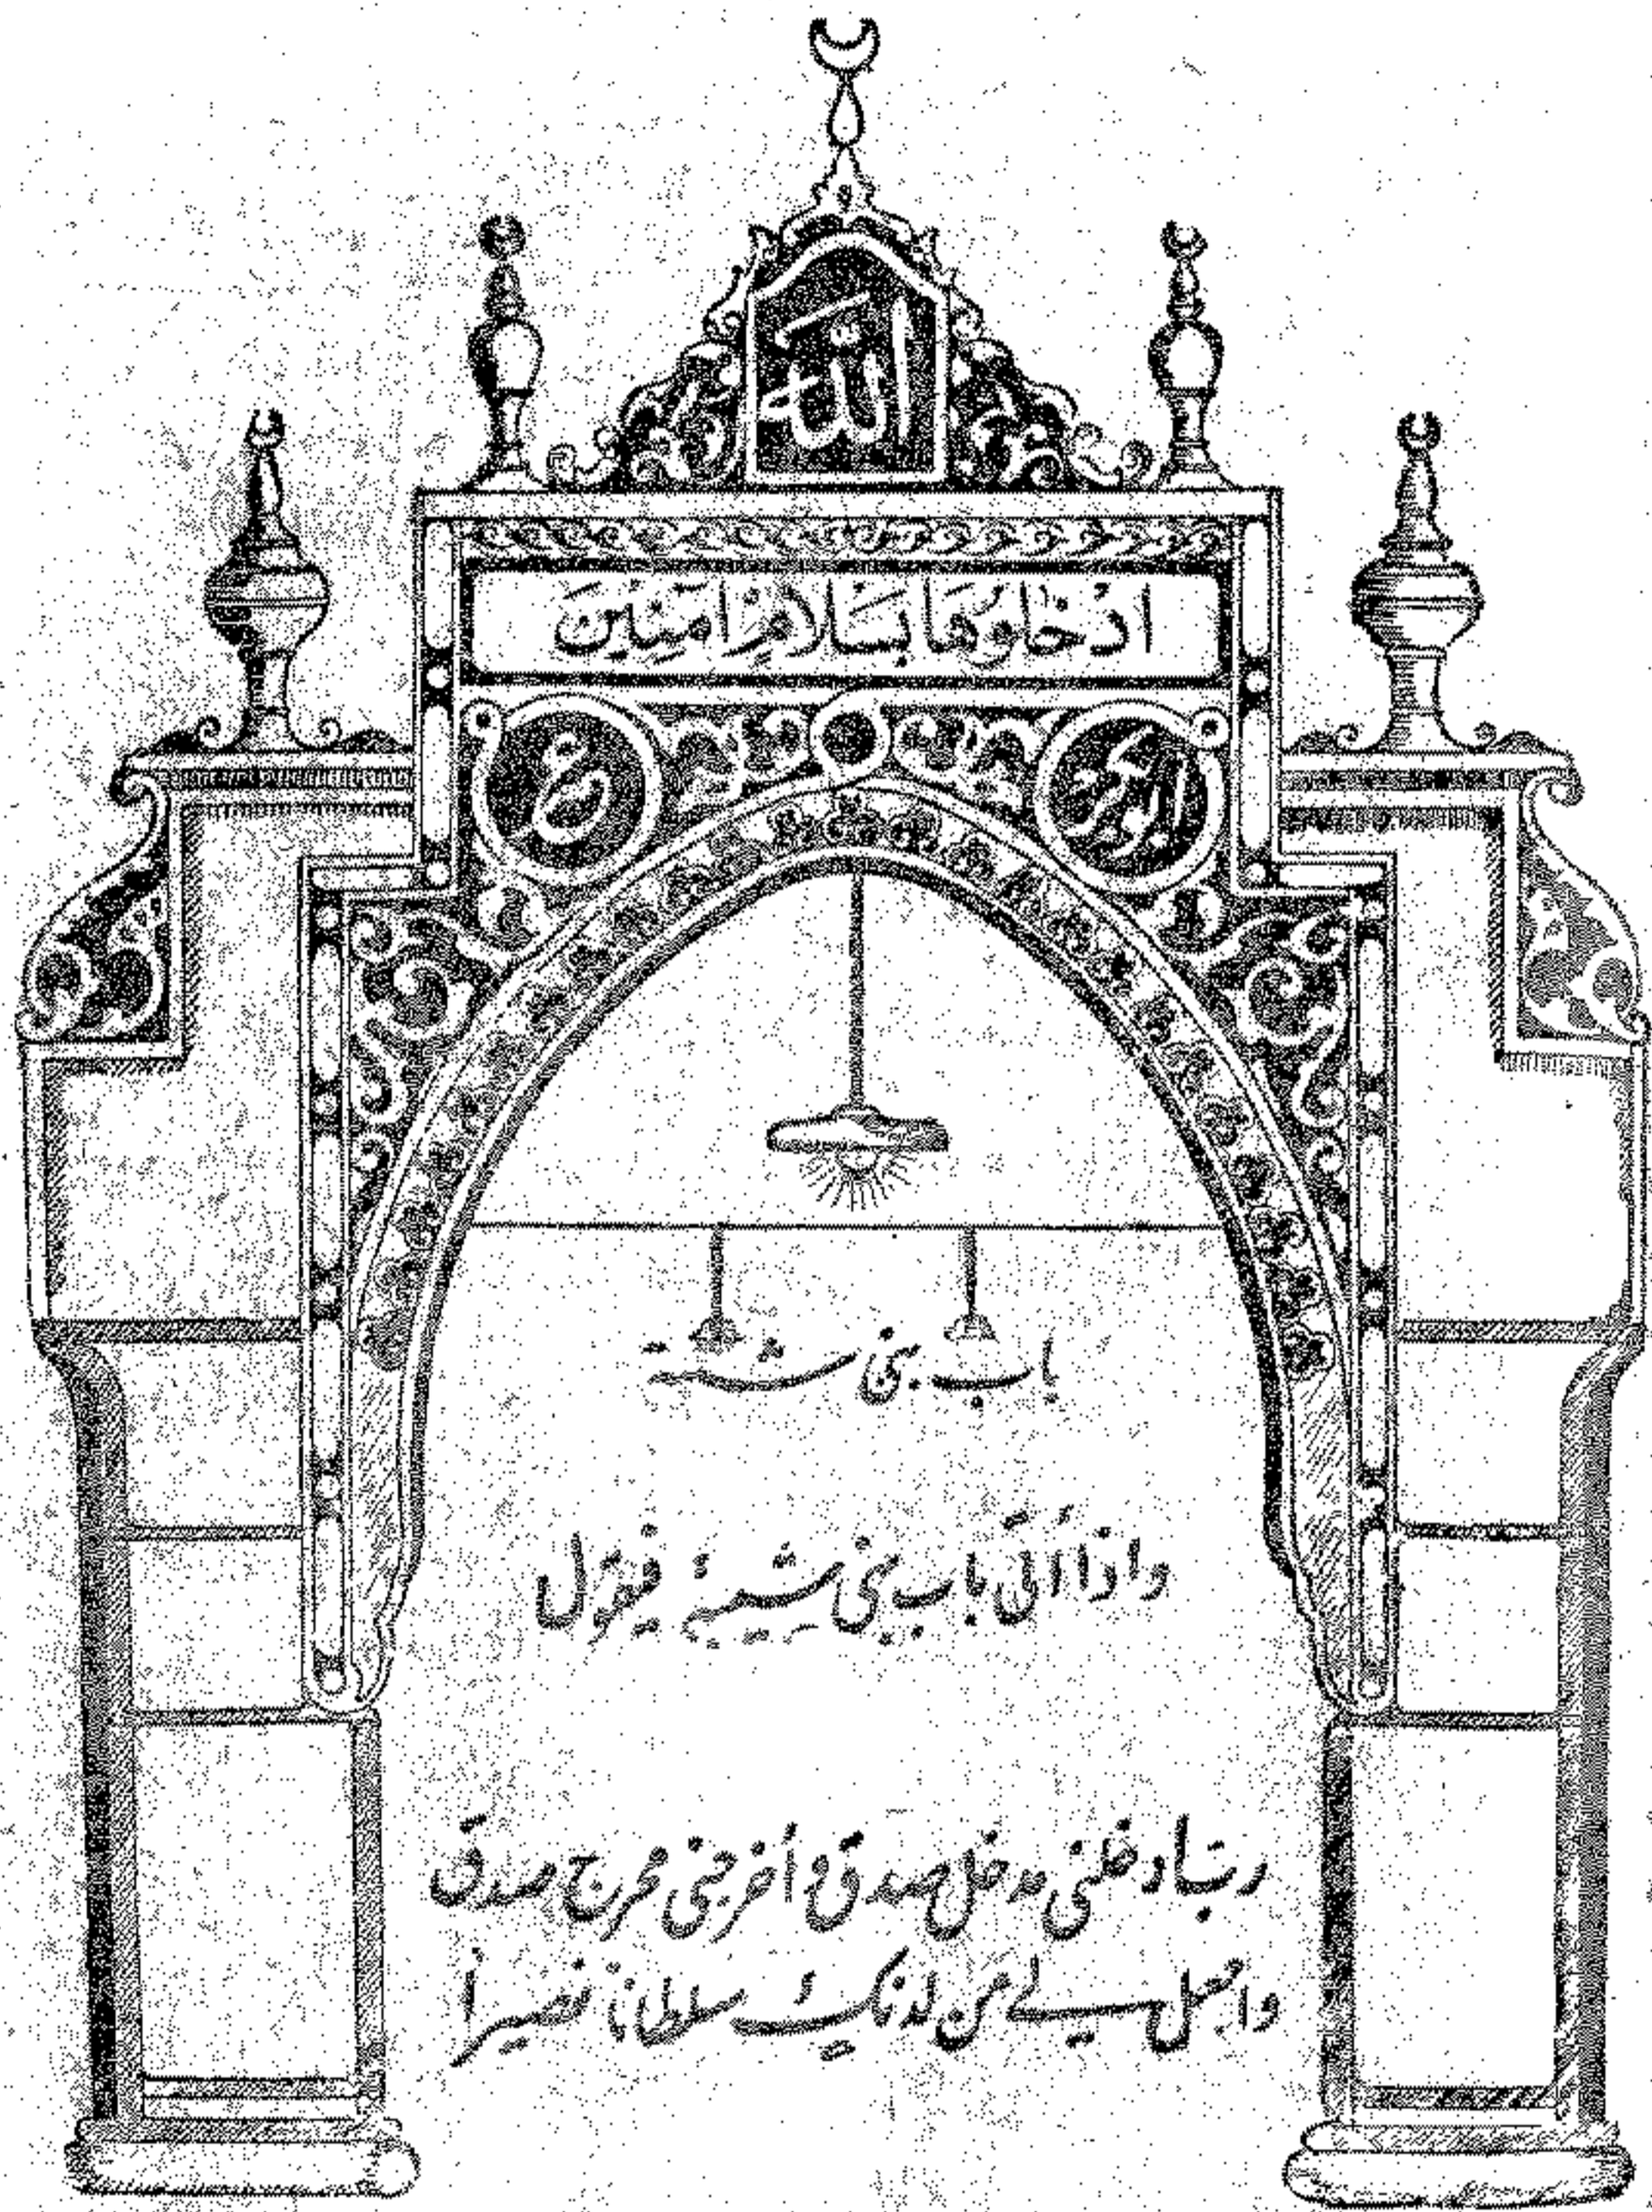 الله
ادْخُلُوهَا بِسَلَامٍ آمَنِيْنَ
باب بنی شیبة
واذا أتیَ باب بنی شیبة فیقول
رب ادخلنی مدخل صدق و أخرجنی مخرج صدق
واجعل لے من لدنک سلطاناً نصیراً